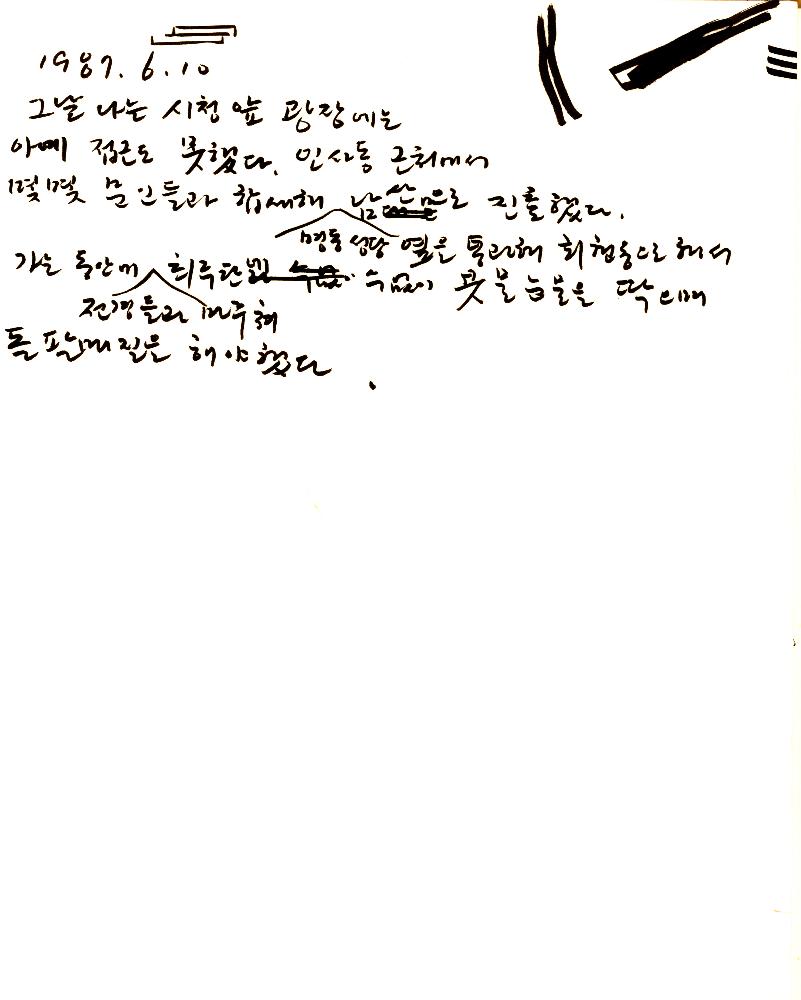 1987. 6. 10
그날 나는 시청 앞 광장에는
아예 접근도 못했다. 인사동 근처에서
몇몇 문인들과 합세해 남산으로 진출했다.
명동성당 옆을 통과해 회현동으로 해서
가는 동안에 최루탄 수없이 콧물눈물을 딱으며
전경들과 마주쳐
돌팔매질을 해야 했다.